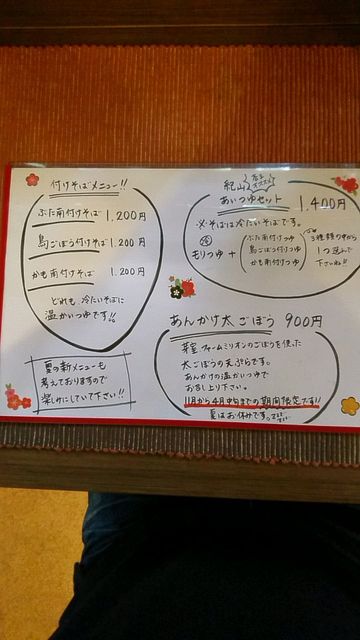 付けそばメニュー!!
ぶた南付けそば 1,200円
鳥ごぼう付けそば 1.200円
かも南付けそば 1.200円
どれも、冷たいそばに
温かいつゆです!!
夏の新メニューも
考えておりますので
楽しみにしていて下さい!!
紀山
店主オススメ
あいつゆセット 1,400円
※そばは冷たいそばです。
冷
もりつゆ +
ぶた南付けつゆ
鳥ごぼう付けつゆ
かも南付けつゆ
3種類の中から
1つ選んで
下さいね!!
あんかけ太ごぼう 900円
芽室ファームミリオンのごぼうを使った
太ごぼうの天ぷらです。
あんかけの温かいつゆで
お召し上り下さい。
11月から4月中旬までの期間限定です!!
夏はお休みです。